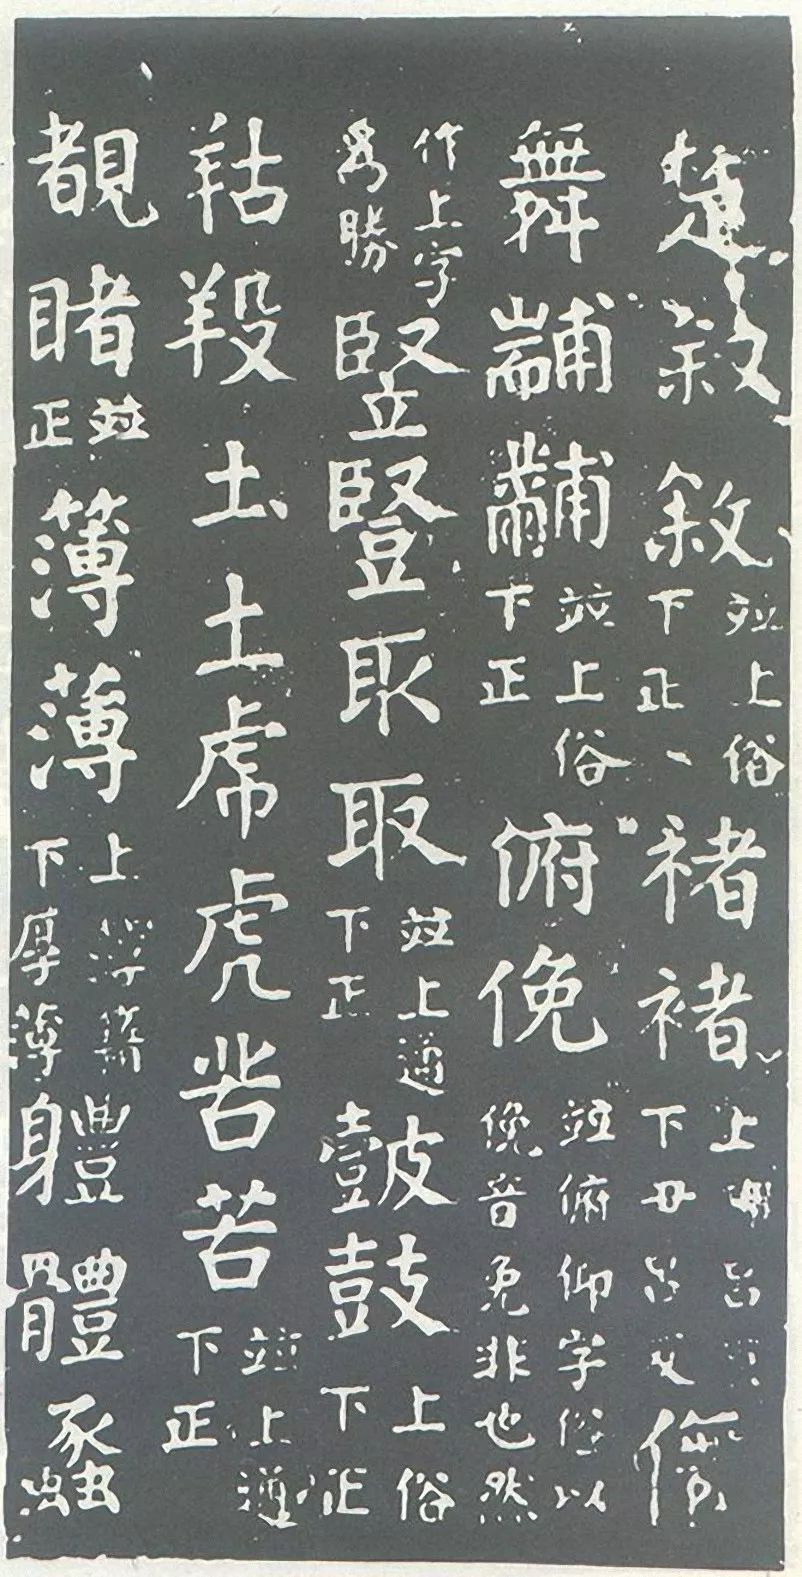 楚敍敘並上俗下正褚褚上下丑呂反儛
舞黼黼並上俗下正俯俛並俯仰字俗以俛音免非也然
作上字為勝竪豎取取並上通下正皷鼓上俗下正
羖土土虎虎苦苦並上通下正
覩睹並正簿薄上簿籍下厚薄軆體蠡